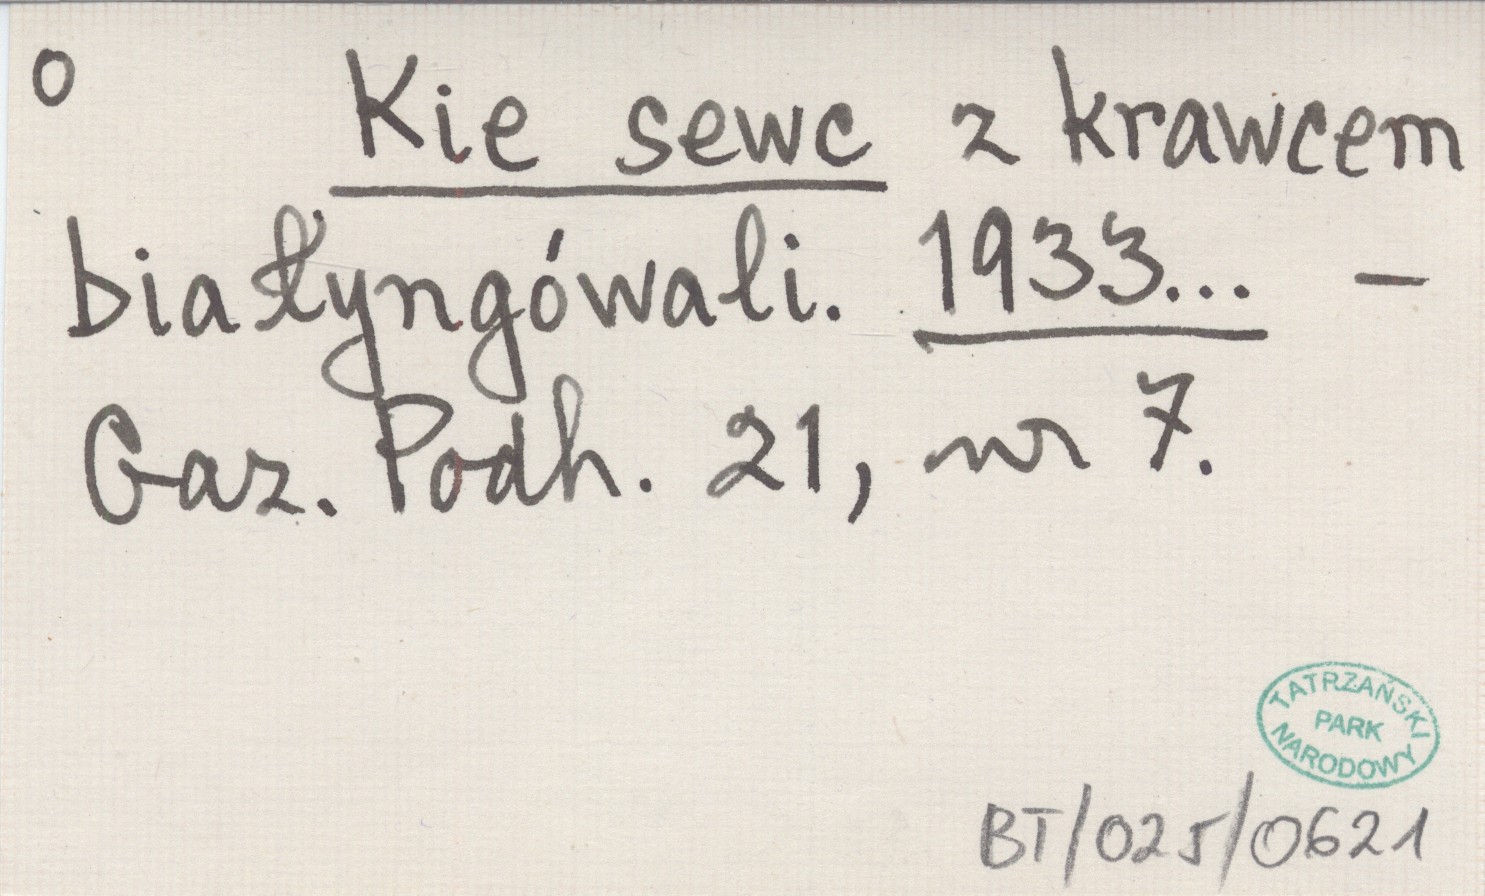 o Kie sewc z krawcem
białyngówali. 1933... –
Gaz. Podh. 21, nr 7.
TATRZAŃSKI
PARK
NARODOWY
BT/025/0621